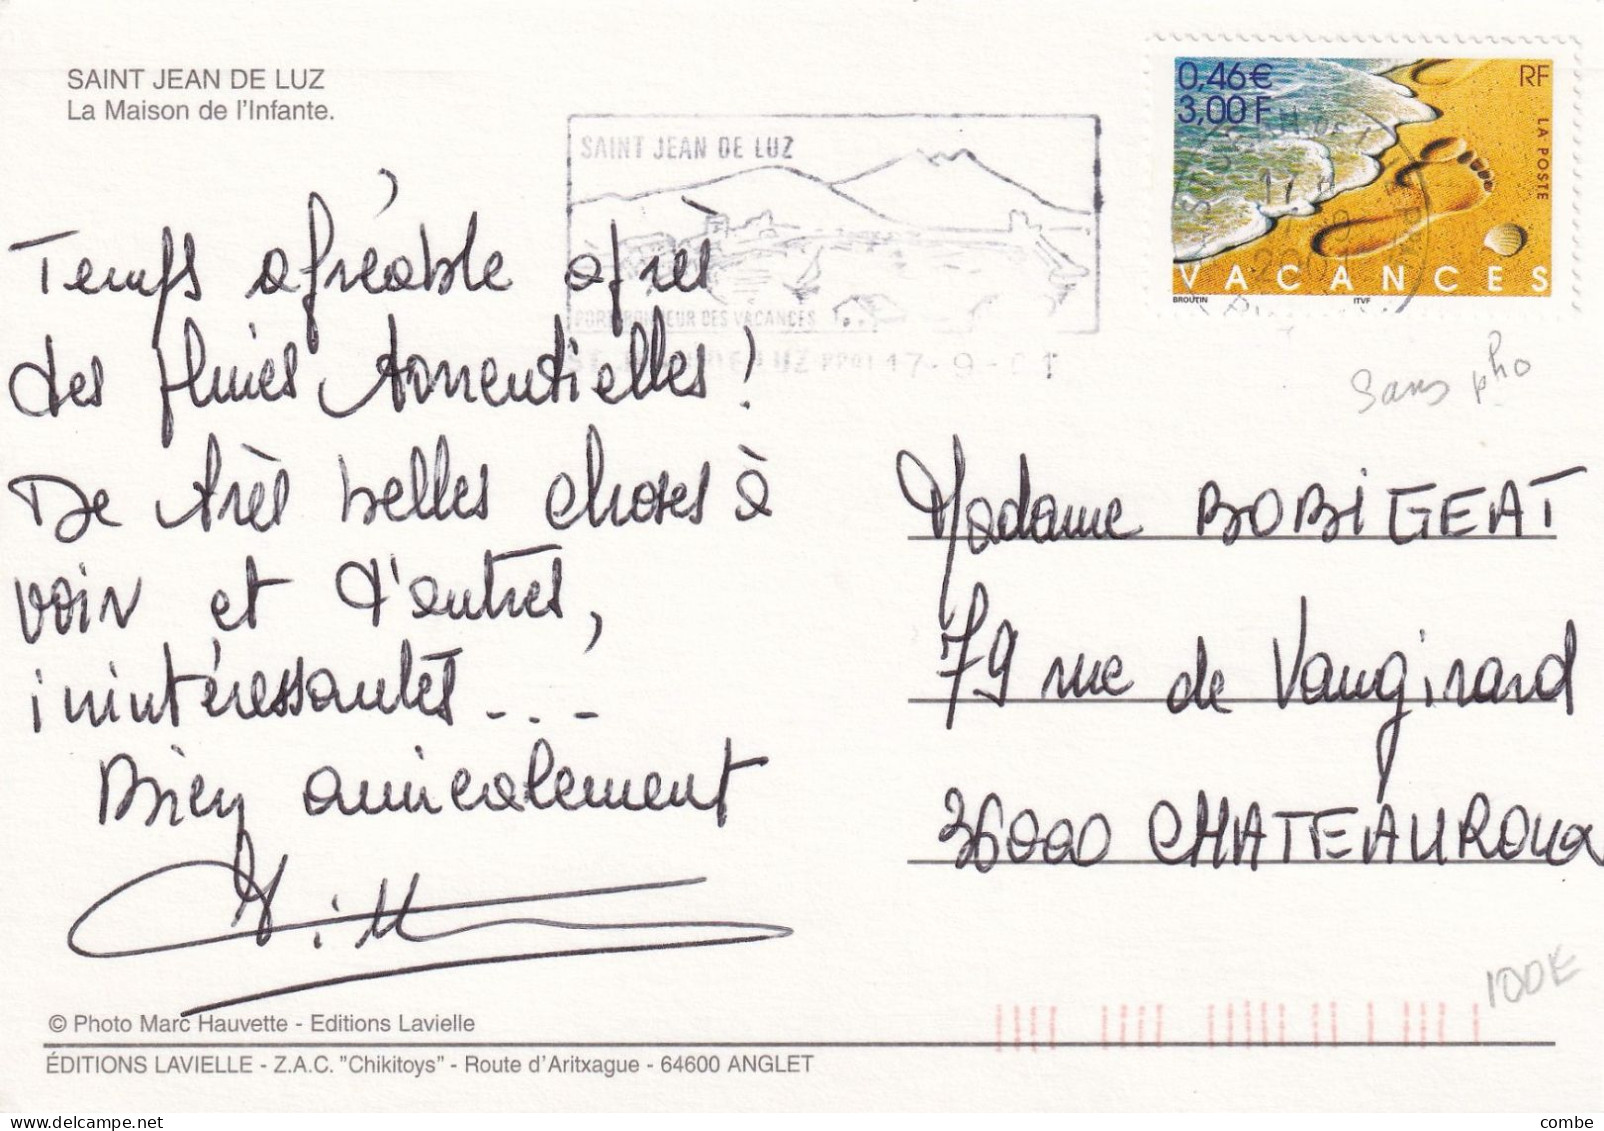 SAINT JEAN DE LUZ
La Maison de l'Infante.
0,46€
3,00 F
RF
LA POSTE
VACANCES
BROUTIN
ITVF
SAINT JEAN DE LUZ
DES VACANCES
17-9-01
2001
Sans pho
Temps agréable après
des pluies torrentielles !
De très belles choses à
voir et d'autres,
inintéressantes...
Bien amicalement
Madame BOBIGEAT
79 rue de Vaugirard
36000 CHATEAUROUX
100€
© Photo Marc Hauvette - Editions Lavielle
ÉDITIONS LAVIELLE - Z.A.C. "Chikitoys" - Route d'Aritxague - 64600 ANGLET
combe